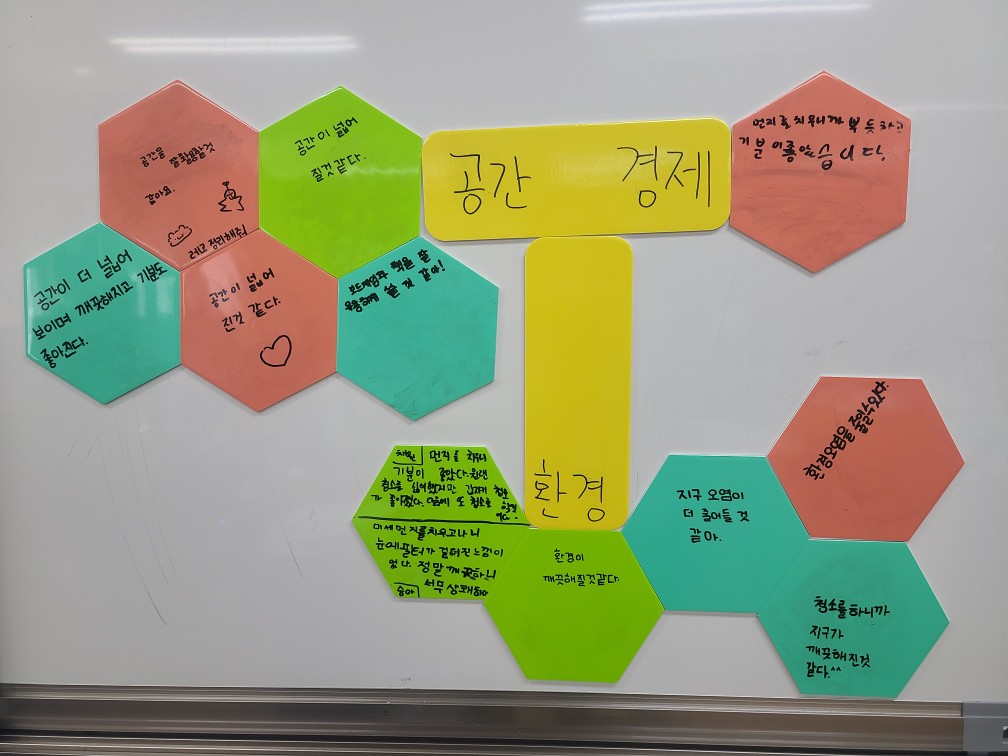 공간을 잘활용할것
같아요.
레고 정리해줘
공간이 넓어
질것같다.
공간 경제
먼지를 치우니까 뿌듯하고
기분이좋았습니다.
공간이 더 넓어
보이며 깨끗해지고 기분도
좋아진다.
공간이 넓어
진것 같다.
보드게임과 책을 잘
유용하게 쓸 것 같아!
환경
채원
먼지를 치우니
기분이 좋았다. 원랜
청소를 싫어했지만 갑자기 청소
가 좋아졌다. 다음에 또 청소를
미세먼지를치우고나니
눈에필터가 걸러진느낌이
었다. 정말 깨끗하니
너무상쾌하다
승아
환경이
깨끗해질것같다.
지구 오염이
더 줄어들 것
같아.
환경오염을 줄일수있다.
청소를하니까
지구가
깨끗해진것
같다.^^